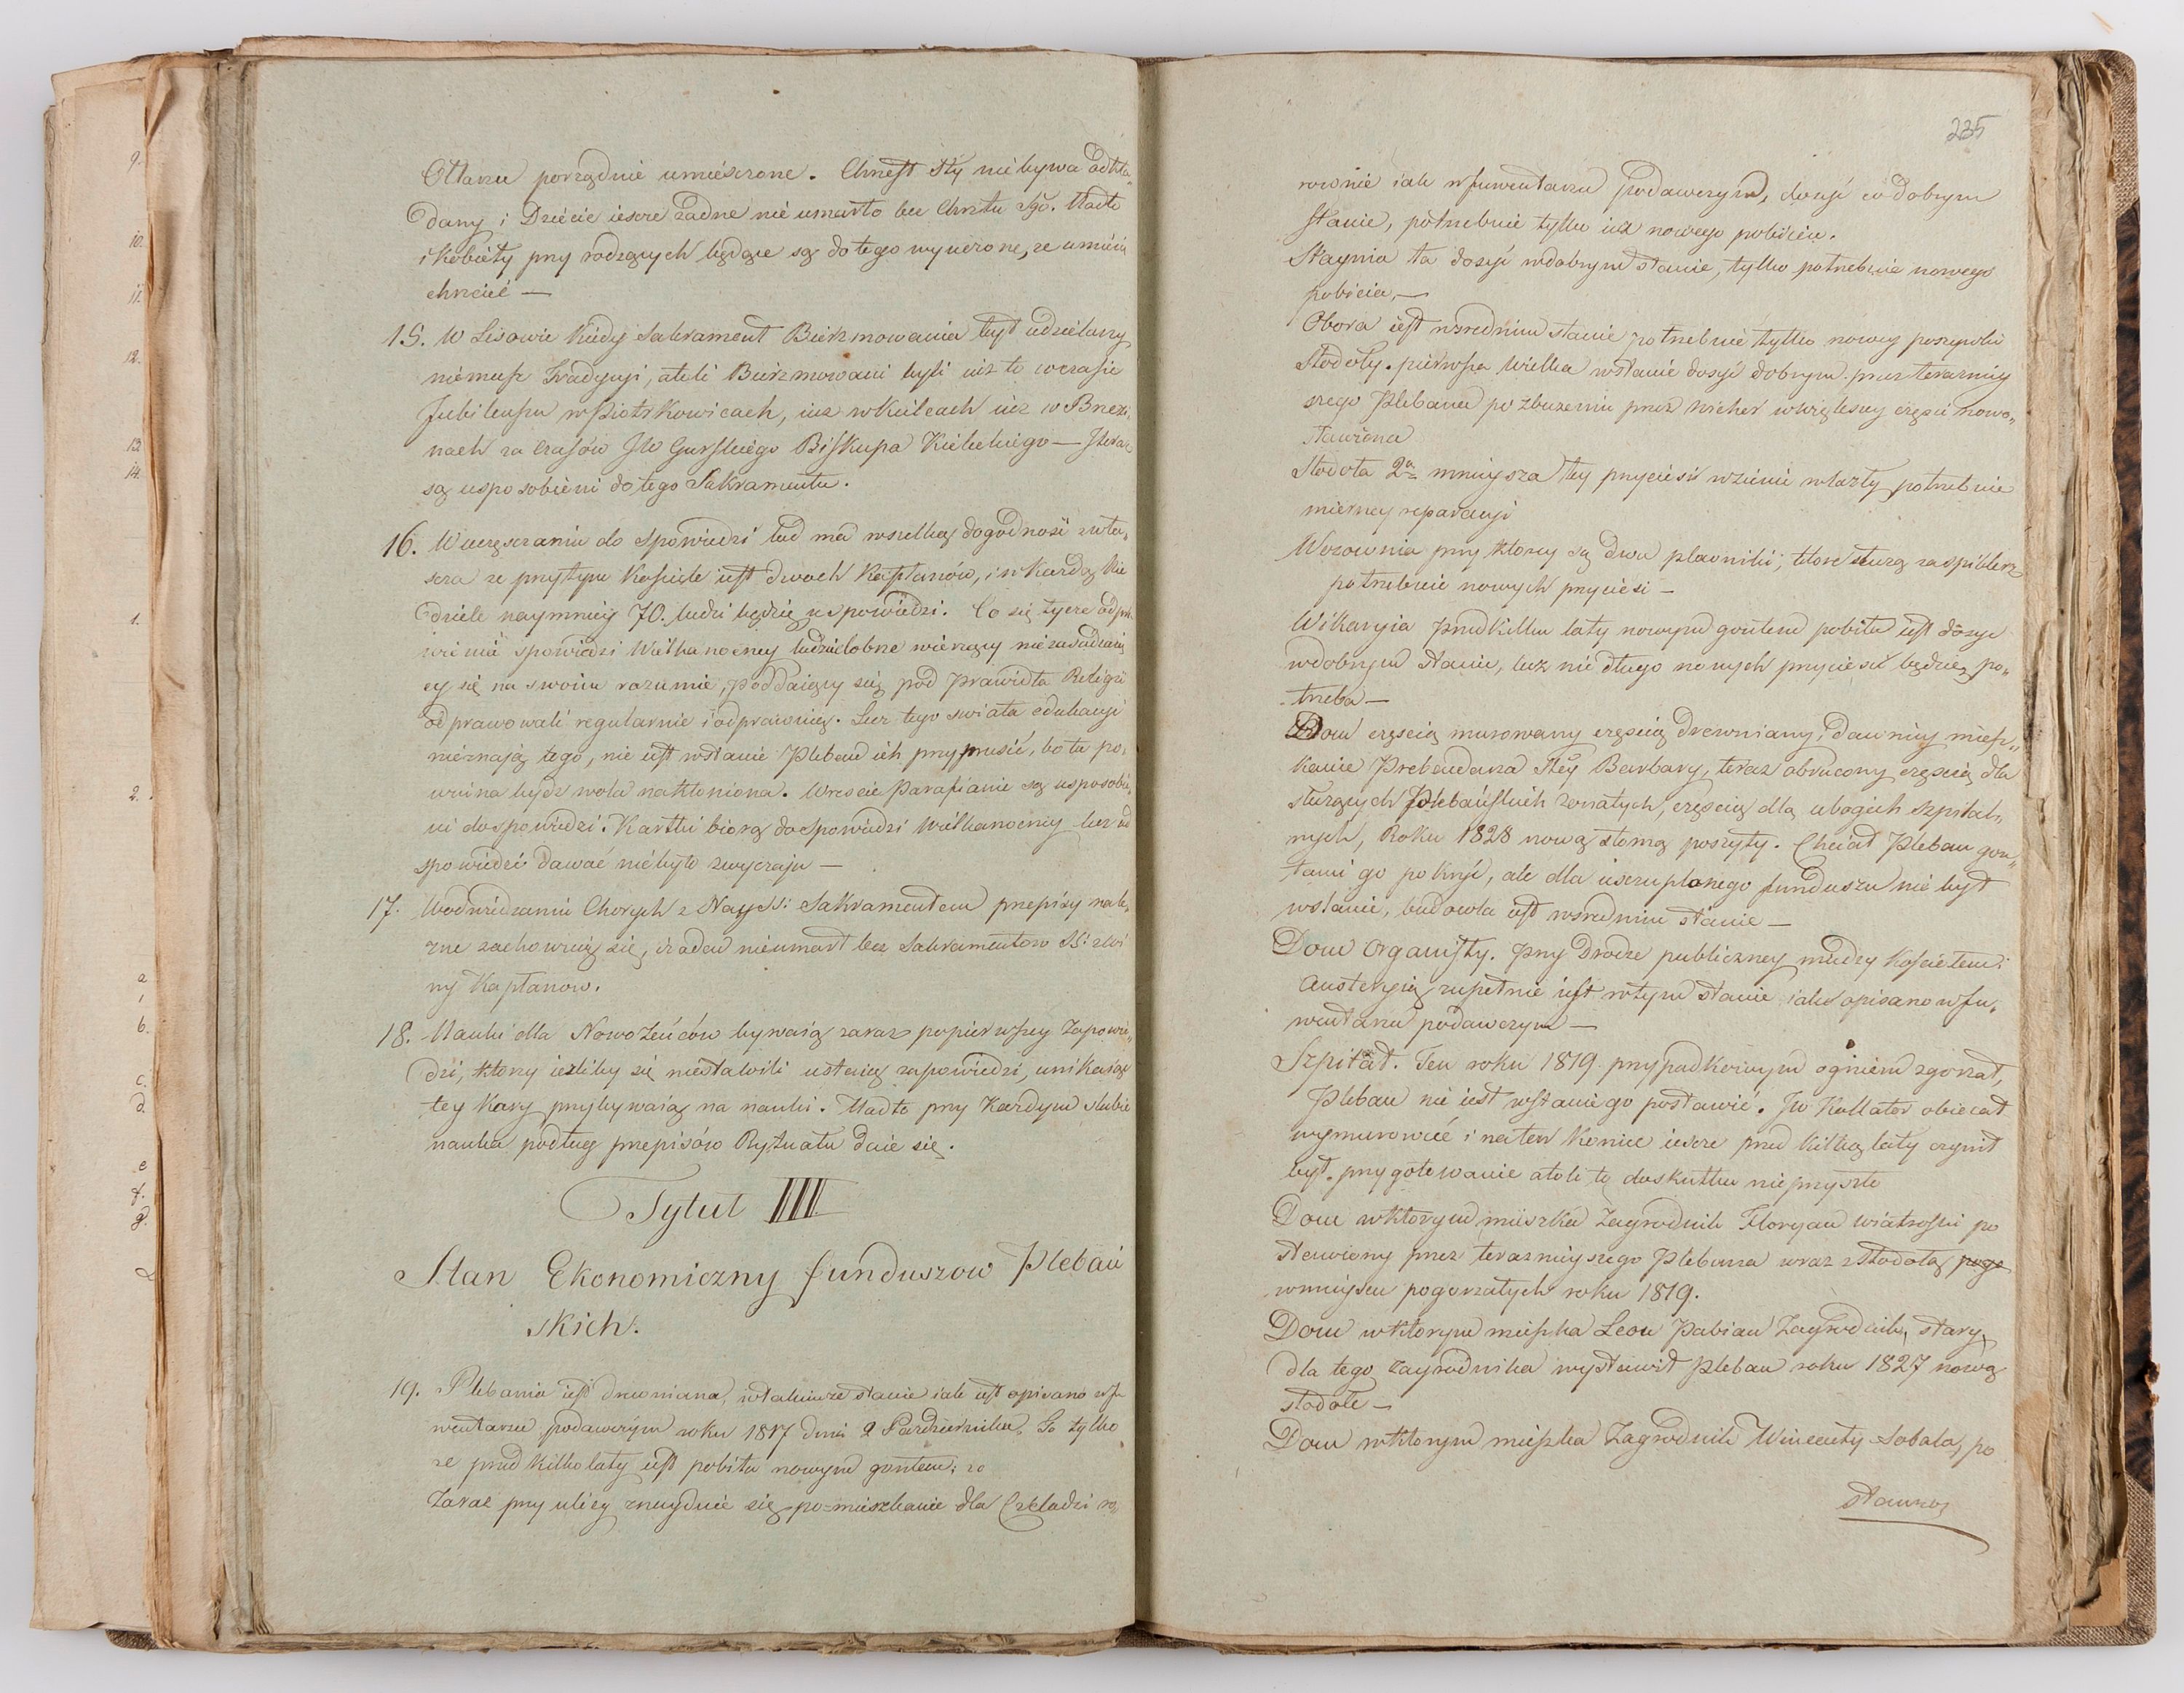 Ołtarzu porządnie umieszczone. Chrzest Sty niebywa odkła„
dany i Dziécie iescze żadne nié umarło bez Chrztu Sgo. Nadto
i Kobiéty przy rodzących będące są do tego wyuczone, że umieią
chrzcić —
15. W Lisowie kiedy Sakrament Bierzmowania był udzielany
niémasz Tradycyi, atoli Bierzmowani byli iuż to w czasie
Jubileuszu w Piotrkowicach, iuż w Kielcach iuż w Brzezi„
nach za czasów JW Gurskiego Biskupa Kieleckiego —
są usposobieni do tego Sakramentu.
16. W uczęszczaniu do Spowiedzi lud ma wszelką dogodność zwła„
scza ze przytym Kościele iest dwóch Kapłanów, i w każdą Nie
dziele naymniéy 70. ludzi będzie u spowiedzi. Co się tycze odpra„
wienia spowiedzi Wielkanocney ludzie dobrze wierzący niezasadzaią
cy się na swoim rozumie, poddaiący się pod prawidła Religii
odprawowali regularnie i odprawuią. Lecz tego swiata edukacyi
nieznają tego, nie iest wstanie Pleban ich przymusić, bo tu po„
winna bydz wola nakłoniona. Wreście Parafianie są usposobie„
ni do spowiedzi. Kartki biorą do Spowiedzi Wielkanocnéy lecz od
spowiedzi dawać niebyło zwyczaju —
17. W odwiedzaniu Chorych z Nayss: Sakramentem przepisy nale„
żne zachowuią się, i żaden nieumarł bez Sakramentow SS: z wi
ny Kapłanow.
18. Nauki dla NowoŻeńców bywaią zaraz po pierwszey Zapowie„
dzi, ktorzy iezliby się niestawili ustaią zapowiedzi, unikaiąc
tey kary przybywaią na nauki. Nadto przy każdym slubie
nauka podług przepisów Rytuału daie się.
Tytuł IIII
Stan Ekonomiczny funduszow Plebań
skich.
19. Plebania iest drewniana, w takimże stanie iak iest opisano w In
wentarzu podawczym roku 1817 dnia 2 Pazdziernika. To tylko
ze przed kilko laty iest pobita nowym gontem; zo
Zaraz przy ulicy znayduie się po=mieszkanie dla Czeladzi ro„
235
rownie iak w Inwentarzu podawczym, dosyć w dobrym
stanie, potrzebuie tylko iuż nowego pobicia.
Staynia ta dosyć w dobrym stanie, tylko potrzebuie nowego
pobicia, —
Obora iest w srednim stanie potrzebuie tylko nowey poszywki
Stodoły. pierwsza wielka w stanie dosyć dobrym. przez teraznieÿ
szego Plebana po zburzeniu przez wicher w większey części nowo„
stawiona
Stodoła 2ª mnieysza tey przyciesie w ziemie wlazły potrzebuie
mierney reparacyi
Wozownia przy ktorey są dwa plewniki, ktore służą za spiklerz
potrzebuie nowych przyciesi —
Wikaryia przed kilku laty nowym gontem pobita iest dosyć
w dobrym stanie, lecz nie długo nowych przyciesi będzie po„
trzeba —
Dom częścią murowany częścią drewniany, dawniey miesz„
kanie Prebendarza Stéy Barbary, teraz obrucony częscią dla
służących Plebańskich żonatych, częścią dla ubogich szpital„
nych, Roku 1828 nową słomą poszyty. Chciał Pleban gon„
tami go pokryć, ale dla uszczuplonego funduszu nie był
w stanie, budowla iest w srednim stanie —
Dom Organisty. Przy Drodze publiczney między Kościołem i
Austeryią zupełnie iest w tym stanie iak opisano w In„
wentarzu podawczym —
Szpital. Ten roku 1819 przypadkowym ogniem zgorzał,
Pleban nie iest w stanie go postawić. JW Kollator obiecał
wymurować i na ten koniec iescze przed kilką laty czynił
był przygotowanie atoli to do skutku nie przyszło
Dom w ktorym mieszka Zagrodnik Floryan Wiatroski po
stawiony przez teraznieyszego Plebana wraz z stodołą pogo
w mieyscu pogorzałych roku 1819.
Dom w ktorym mieszka Leon Pabian Zagrodnik, stary,
dla tego zagrodnika wystawił Pleban roku 1827 nową
stodołe —
Dom w ktorym mieszka Zagrodnik Wincenty Sobala, po
stawion
9.
10.
11.
12.
13.
14.
1.
2.
a
b.
c.
d.
e
f.
g.